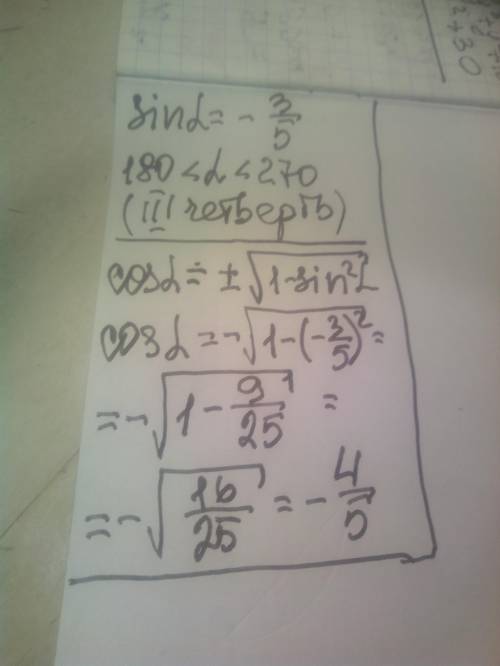 sinα = - 3/5
180 < α < 270
(III четверть)
cosα = ± √(1-sin²α)
cosα = -√(1-(-3/5)²) =
= -√(1 - 9/25) =
= -√(16/25) = - 4/5